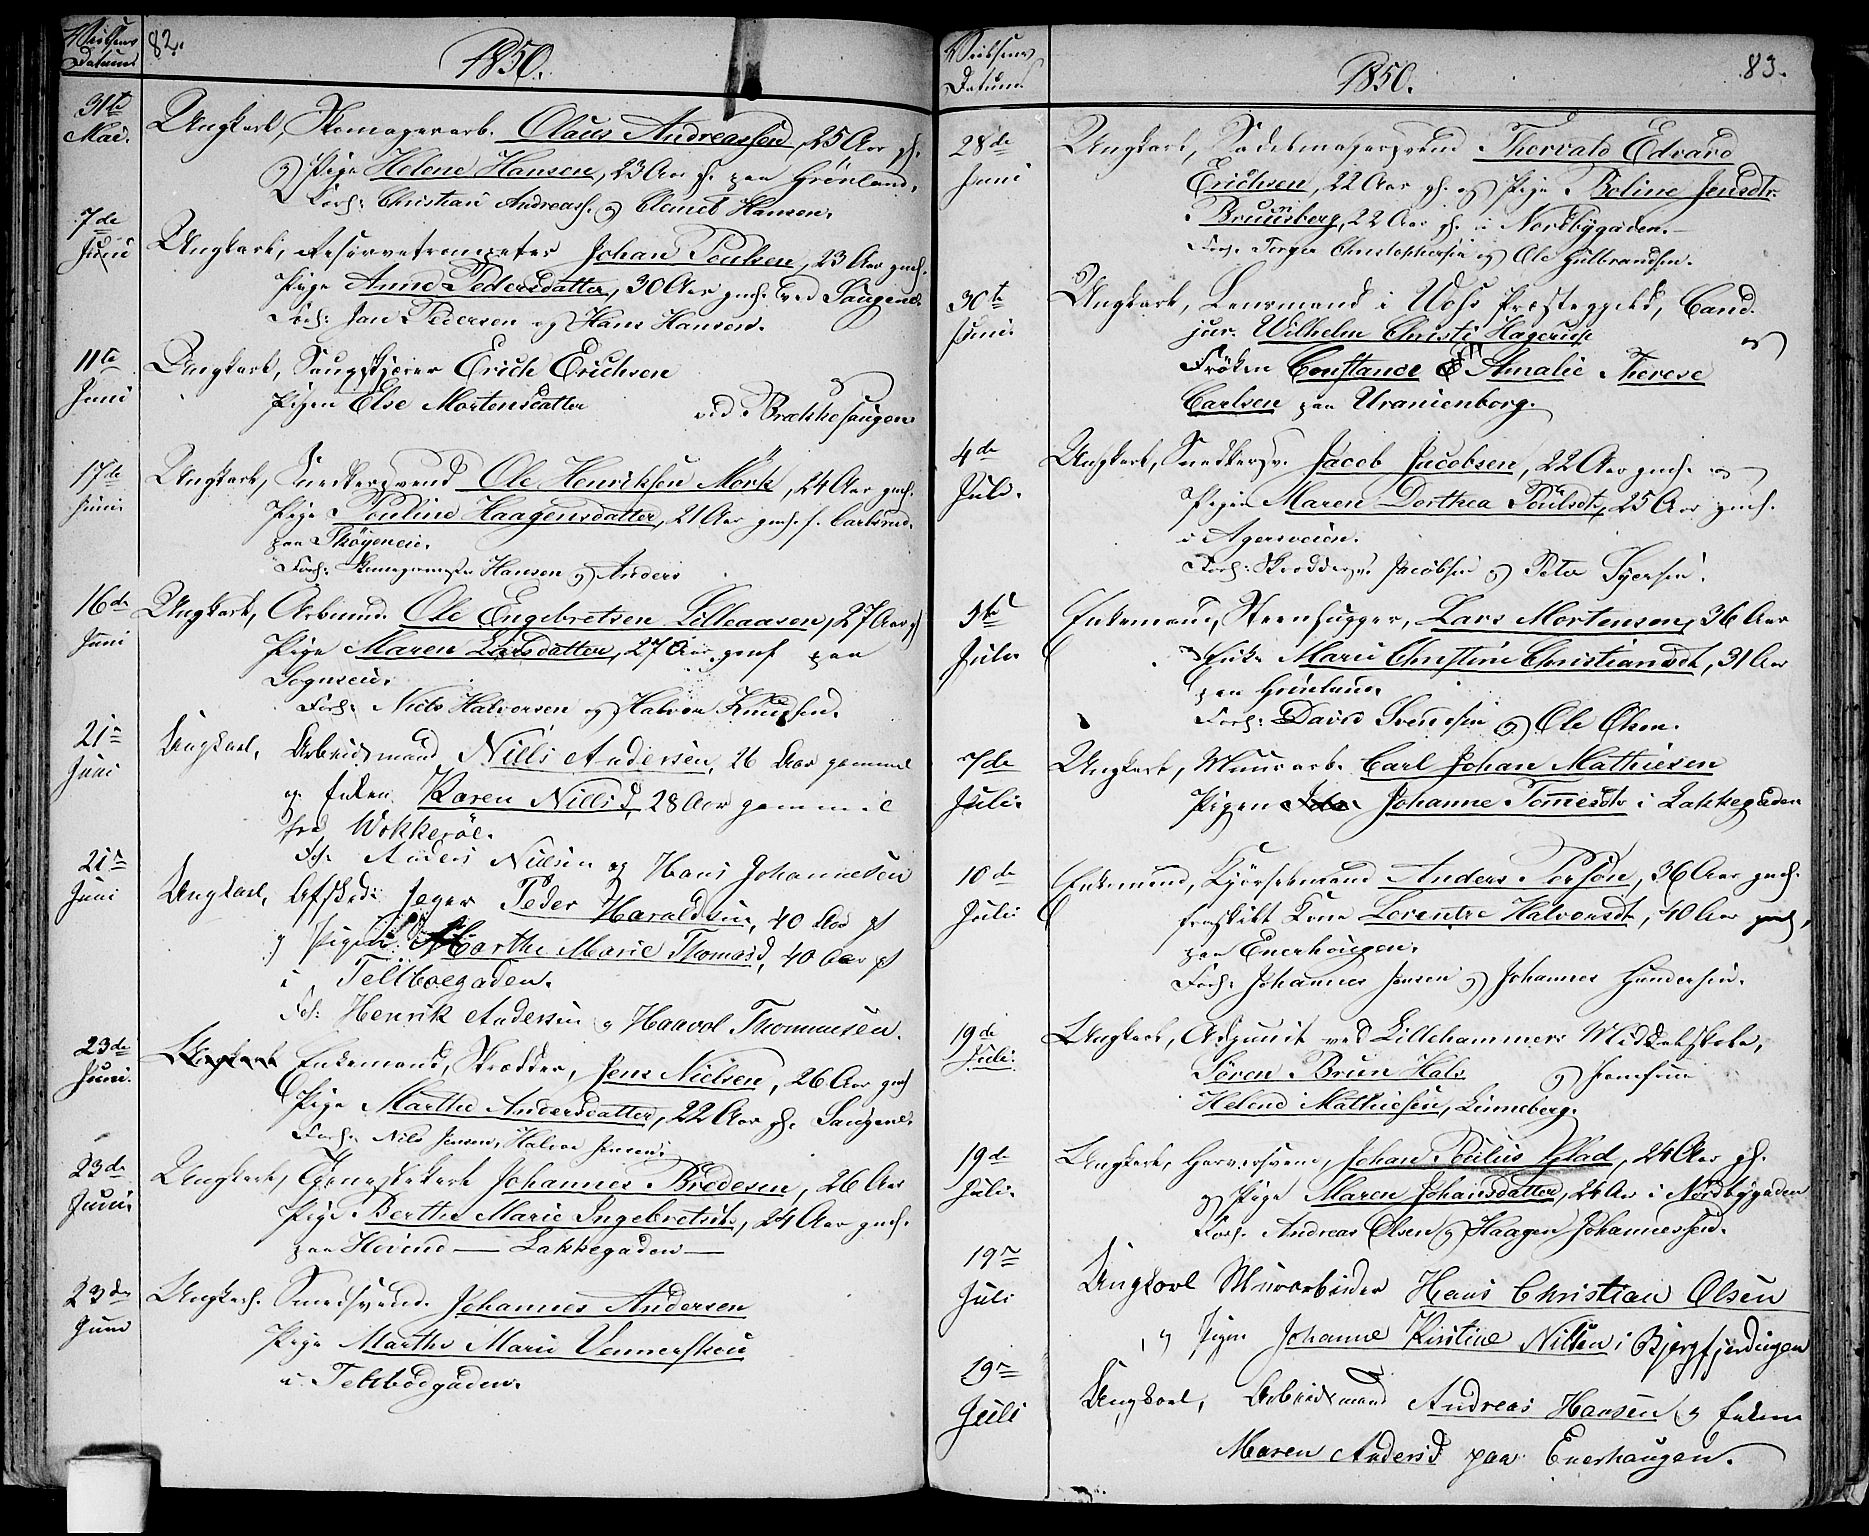 Vielsens Datum
82.
1850.
31te Mai.
Ungkarl, Skomagerarb. Olaus Andreassen, 25 Aar gl.
og Pige Helene Hansen, 23 Aar gl. paa Grönland,
Forl: Christian Andreass. og Clemet Hansen.
7de Juni
Ungkarl, Reservetrompeter Johan Poulsen, 23 Aar gml.
Pige Anne Pedersdatter, 30 Aar gml. ved Saugene.
Forl: Jan Pedersen og Hans Hansen.
11te Juni
Ungkarl, Saugskjærer Erich Erichsen
Pigen Else Mortensdatter ved Brækkesaugen
17de Juni.
Ungkarl, Snedkersvend Ole Henriksen Mörk, 24 Aar gml.
Pige Pouline Haagensdatter, 21 Aar gml. f. Carlsrud.
paa Thöyeneie.
Forl: Skomagermester Hansen og Anders
16de Juni
Ungkarl, Arbmd. Ole Engebretsen Lilleaasen, 27 Aar gl
Pige Maren Larsdatter, 27 Aar gml paa
Sognseie.
Forl: Niels Halvorsen og Halvor Knudsen.
21de Juni
Ungkarl, Arbeidsmand Niels Andersen, 26 Aar gammel
og Enken Karen Nilsd, 28 Aar gammel
fra Wækkerøe.
Fol. Anders Nielsen og Hans Johannesen
21de Juni
Ungkarl, Afskedi: Jeger Peder Haraldsen, 40 Aar gl
og Pigen Marthe Marie Thomasd, 40 Aar gl
i Teltboegaden.
Fol: Henrik Andersen og Haavol Thommesen.
23de Juni.
Enkemand, Skrædder, Jens Nielsen, 26 Aar gml
Pige Marthe Andersdatter, 22 Aar gl. Saugene.
Forl. Nils Jensen, Halvor Jensen.
23de Juni
Ungkarl, Tjenestekarl Johannes Bredesen, 26 Aar
Pige Berthe Marie Ingebretsdtr, 24 Aar gml.
paa Hovind — Lakkegaden —
23de Juni
Ungkarl. Smedsvend. Johannes Andersen
Pige Marthe Marie Vennerskou
i Teltboegaden.
Vielsens Datum
1850.
83.
28de Juni
Ungkarl, Sadelmagersvend Thorvald Edvard
Erichsen, 22 Aar gl. og Pige Boline Jensdtr.
Bruunsberg, 22 Aar gl. i Nordbygaden.
Forl. Torger Christophersen og Ole Gulbrandsen.
30te Juni.
Ungkarl, Lensmand i Vohs Præstegjeld, Cand.
jur. Wilhelm Christi Hagerup og
Fröken Constance Amalie Therese
Carlsen paa Uranienborg.
4de Juli.
Ungkarl, Snedkersv. Jacob Jacobsen, 22 Aar gml. og
Pigen Maren Dorthea Poulsdtr, 25 Aar gml.
i Agersveien.
Forl: Skreddersv. Jacobsen og Peter Syversen.
5te Juli
Enkemand, Steenhugger, Lars Mortensen, 36 Aar
Enke Marie Christine Christiansdt, 31 Aar
paa Grönland.
Forl: David Svendsen og Ole Olsen.
7de Juli.
Ungkarl, Muurarb. Carl Johan Mathiesen
Pigen Johanne Tomesdtr i Lakkegaden
10de Juli
Enkemand, Kjörselsmand Anders Persön, 36 Aar gml.
fraskilt Kone Lorentze Halvorsdt, 40 Aar gml,
paa Enerhougen.
Forl: Johannes Jensen og Johannes Gundersen.
19de Juli.
Ungkarl, Adjunct ved Lillehammers Middelskole,
Sören Brun Hals og Jomfrue
Helene Mathiesen, Linneberg.
19de Juli.
Ungkarl, Garversvend, Johan Poulus Plad, 24 Aar gl.
og Pige Maren Johansdatter, 24 Aar i Nordbygaden
Forl. Andreas Olsen og Haagen Johannessen.
19de Juli
Ungkarl Murarbeider Hans Christian Olsen
og Pigen Johanne Kirstine Nilsen i Bjergfjerdingen
19de Juli
Ungkarl, Arbeidsmand Andreas Hansen og Enken
Maren Andersd paa Enerhaugen.